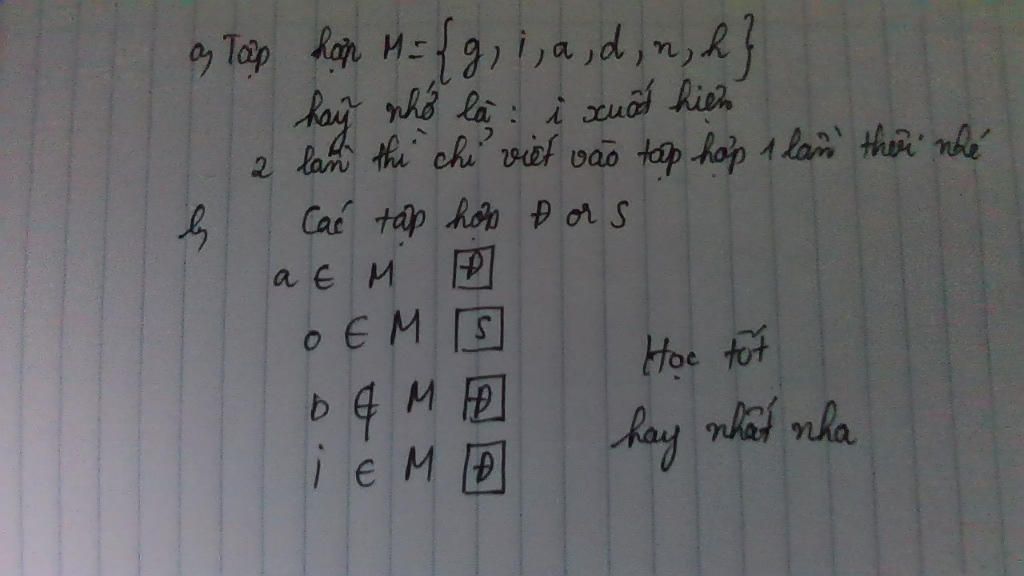 a, Tập hợp M = { g, i, a, d, n, h }
hay nhớ là : i xuất hiện
2 lần thì chỉ viết vào tập hợp 1 lần thôi nhé
b, Các tập hợp Đ or S
a ∈ M Đ
o ∈ M S
b ∉ M Đ
i ∈ M Đ
Học tốt
hay nhất nha